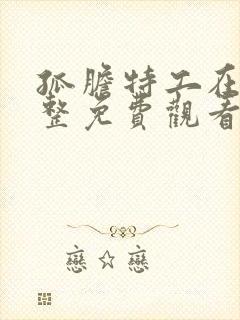 孤膽特工在
整免費觀看
戀☆戀